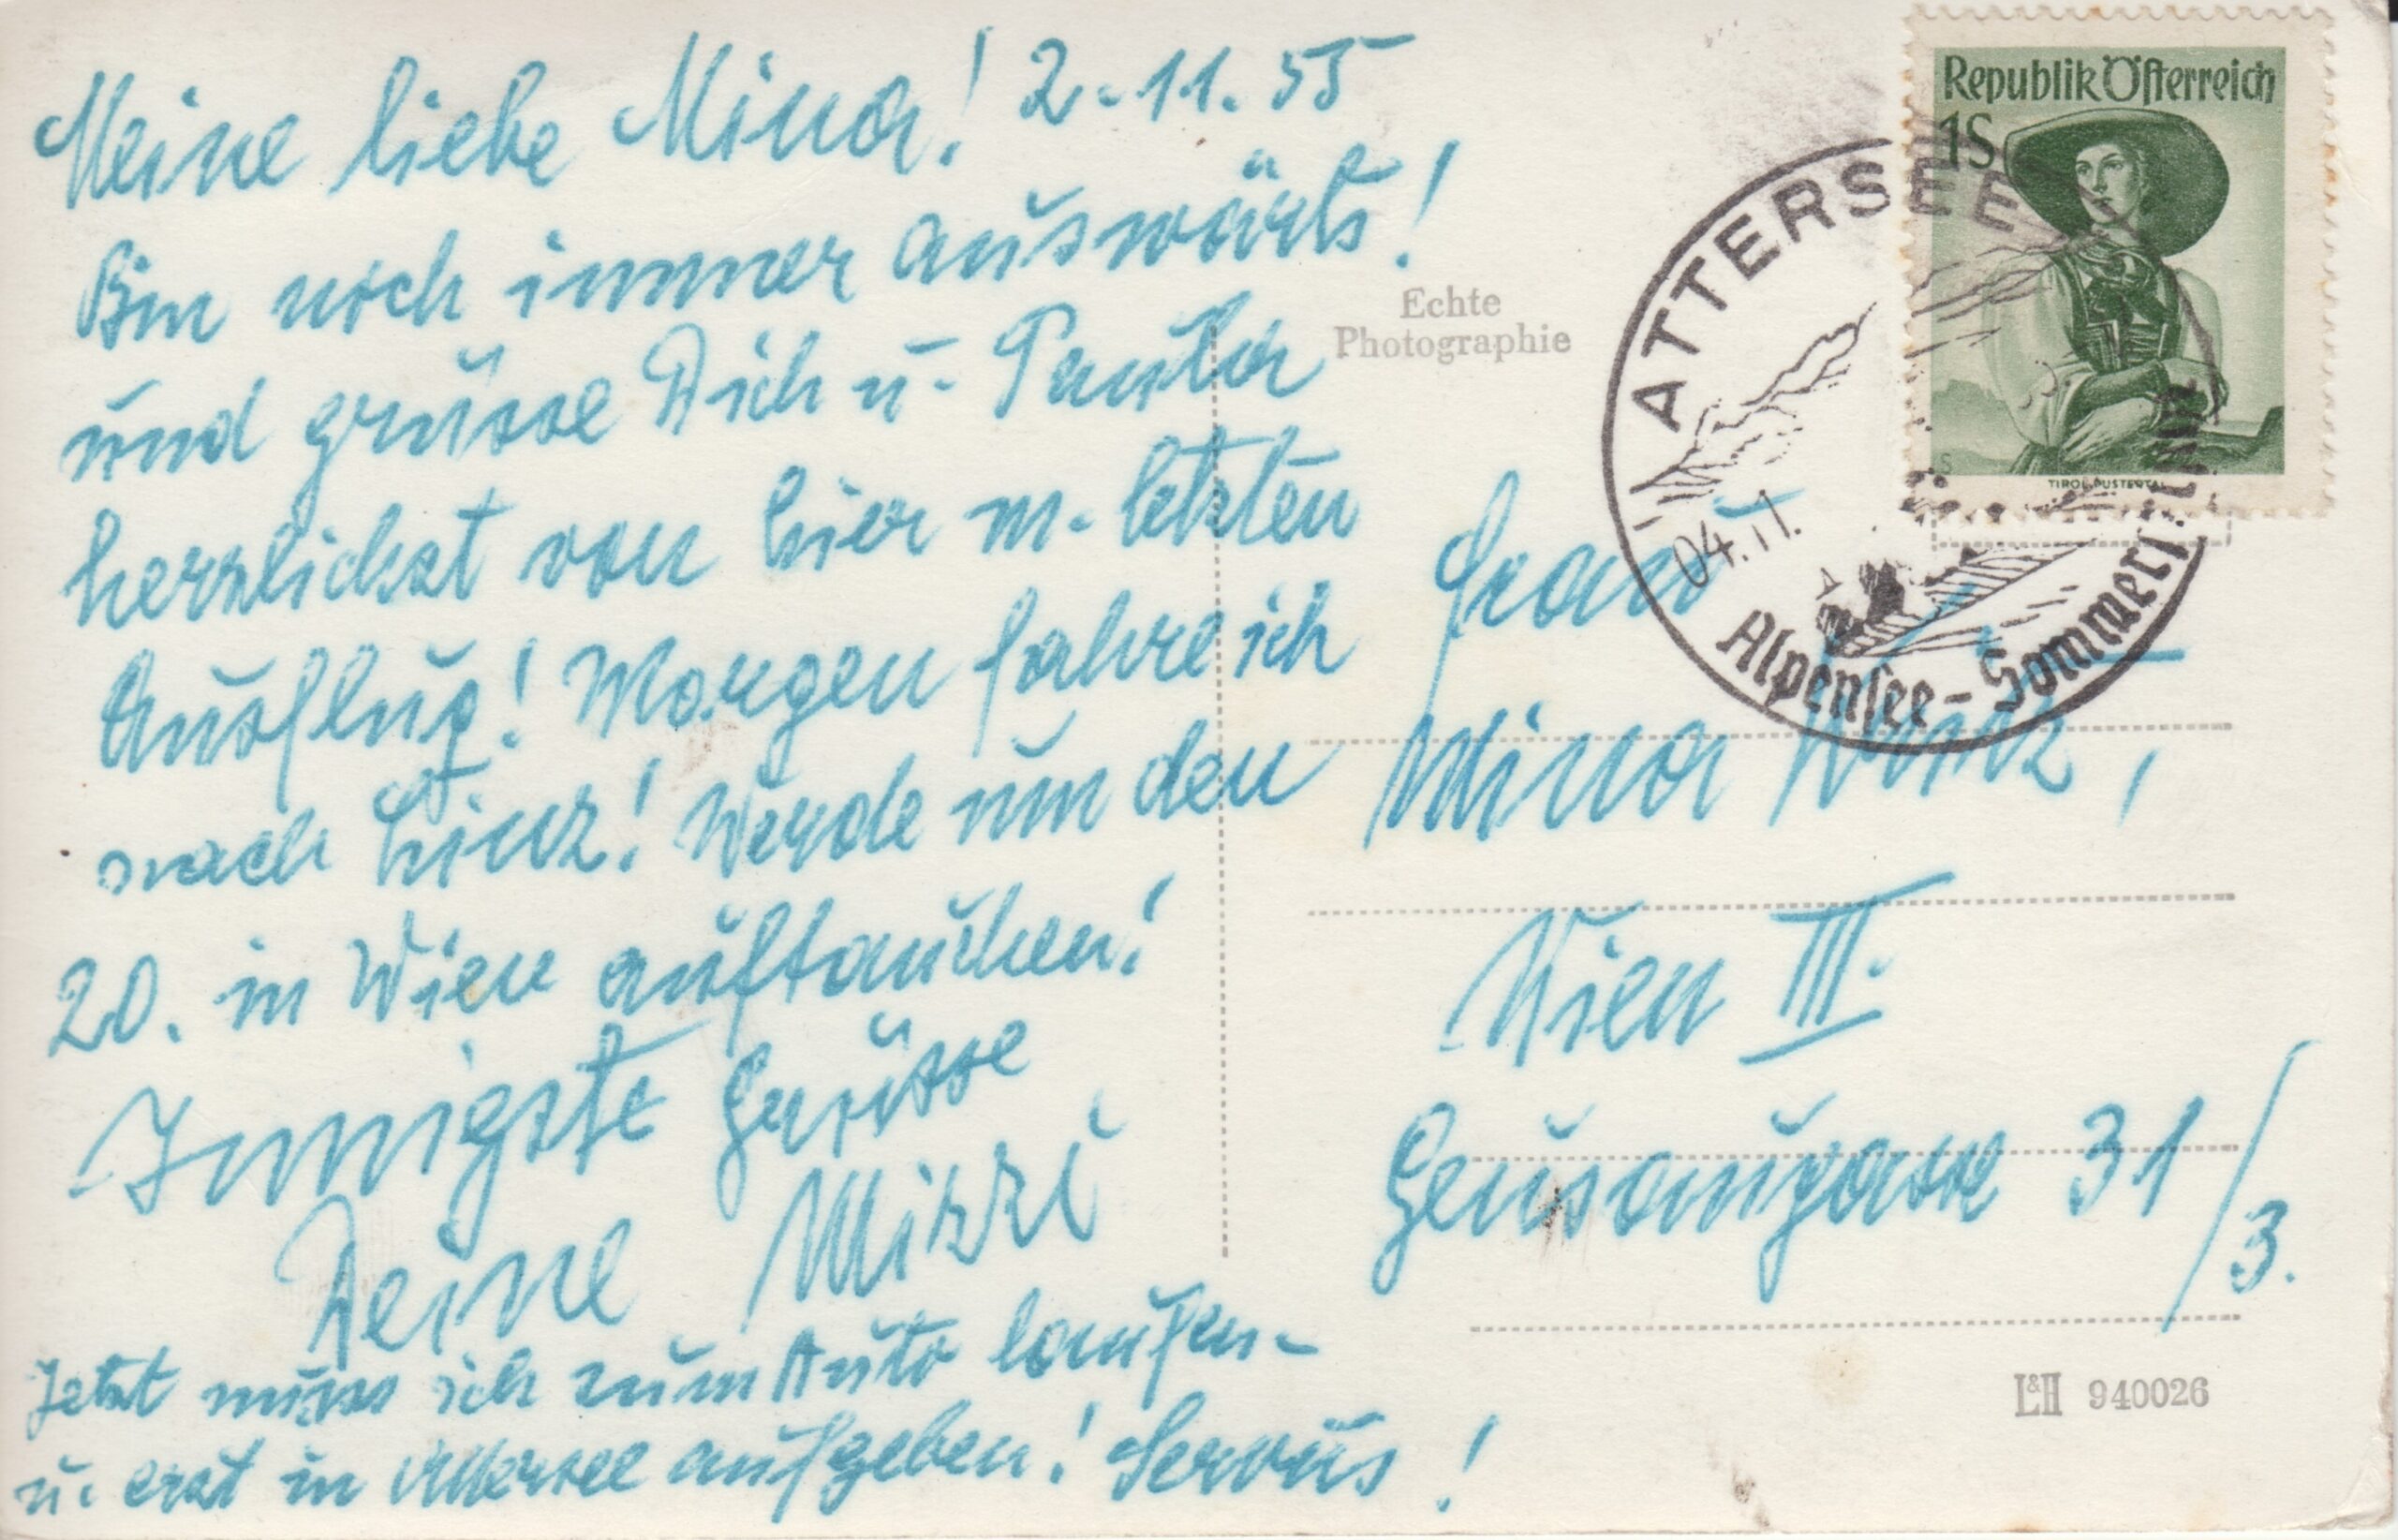 Meine liebe Mina! 2.11.55
Bin noch immer auswärts!
und grüsse Dich u. Paula
herzlichst von hier m. letzten
Ausflug! Morgen fahre ich
nach Linz! Werde um den
20. in Wien auftauchen!
Innigste Grüsse
Deine Mizzi
Jetzt muss ich zum Auto laufen-
u. erst in Attersee aufgeben! Servus!
Echte
Photographie
Republik Österreich
1S
TIROL-PUSTERTAL
ATTERSEE
04.11.
Alpensee-Sommerfrische
Frau
Mina
Wien III.
Geusaugasse 31/3.
L&H 940026